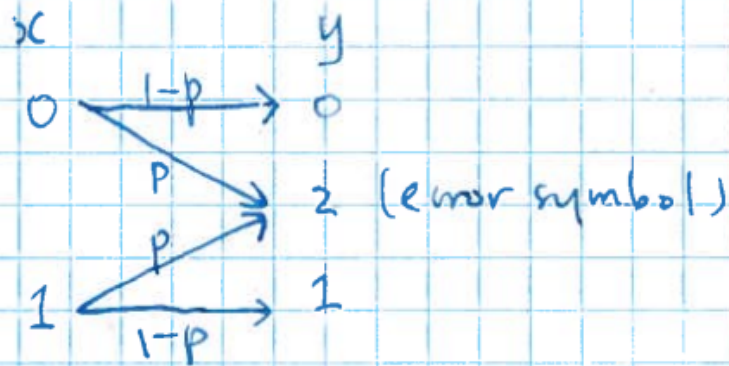 x y
0 1-p 0
p
2 (error symbol)
p
1 1
1-p